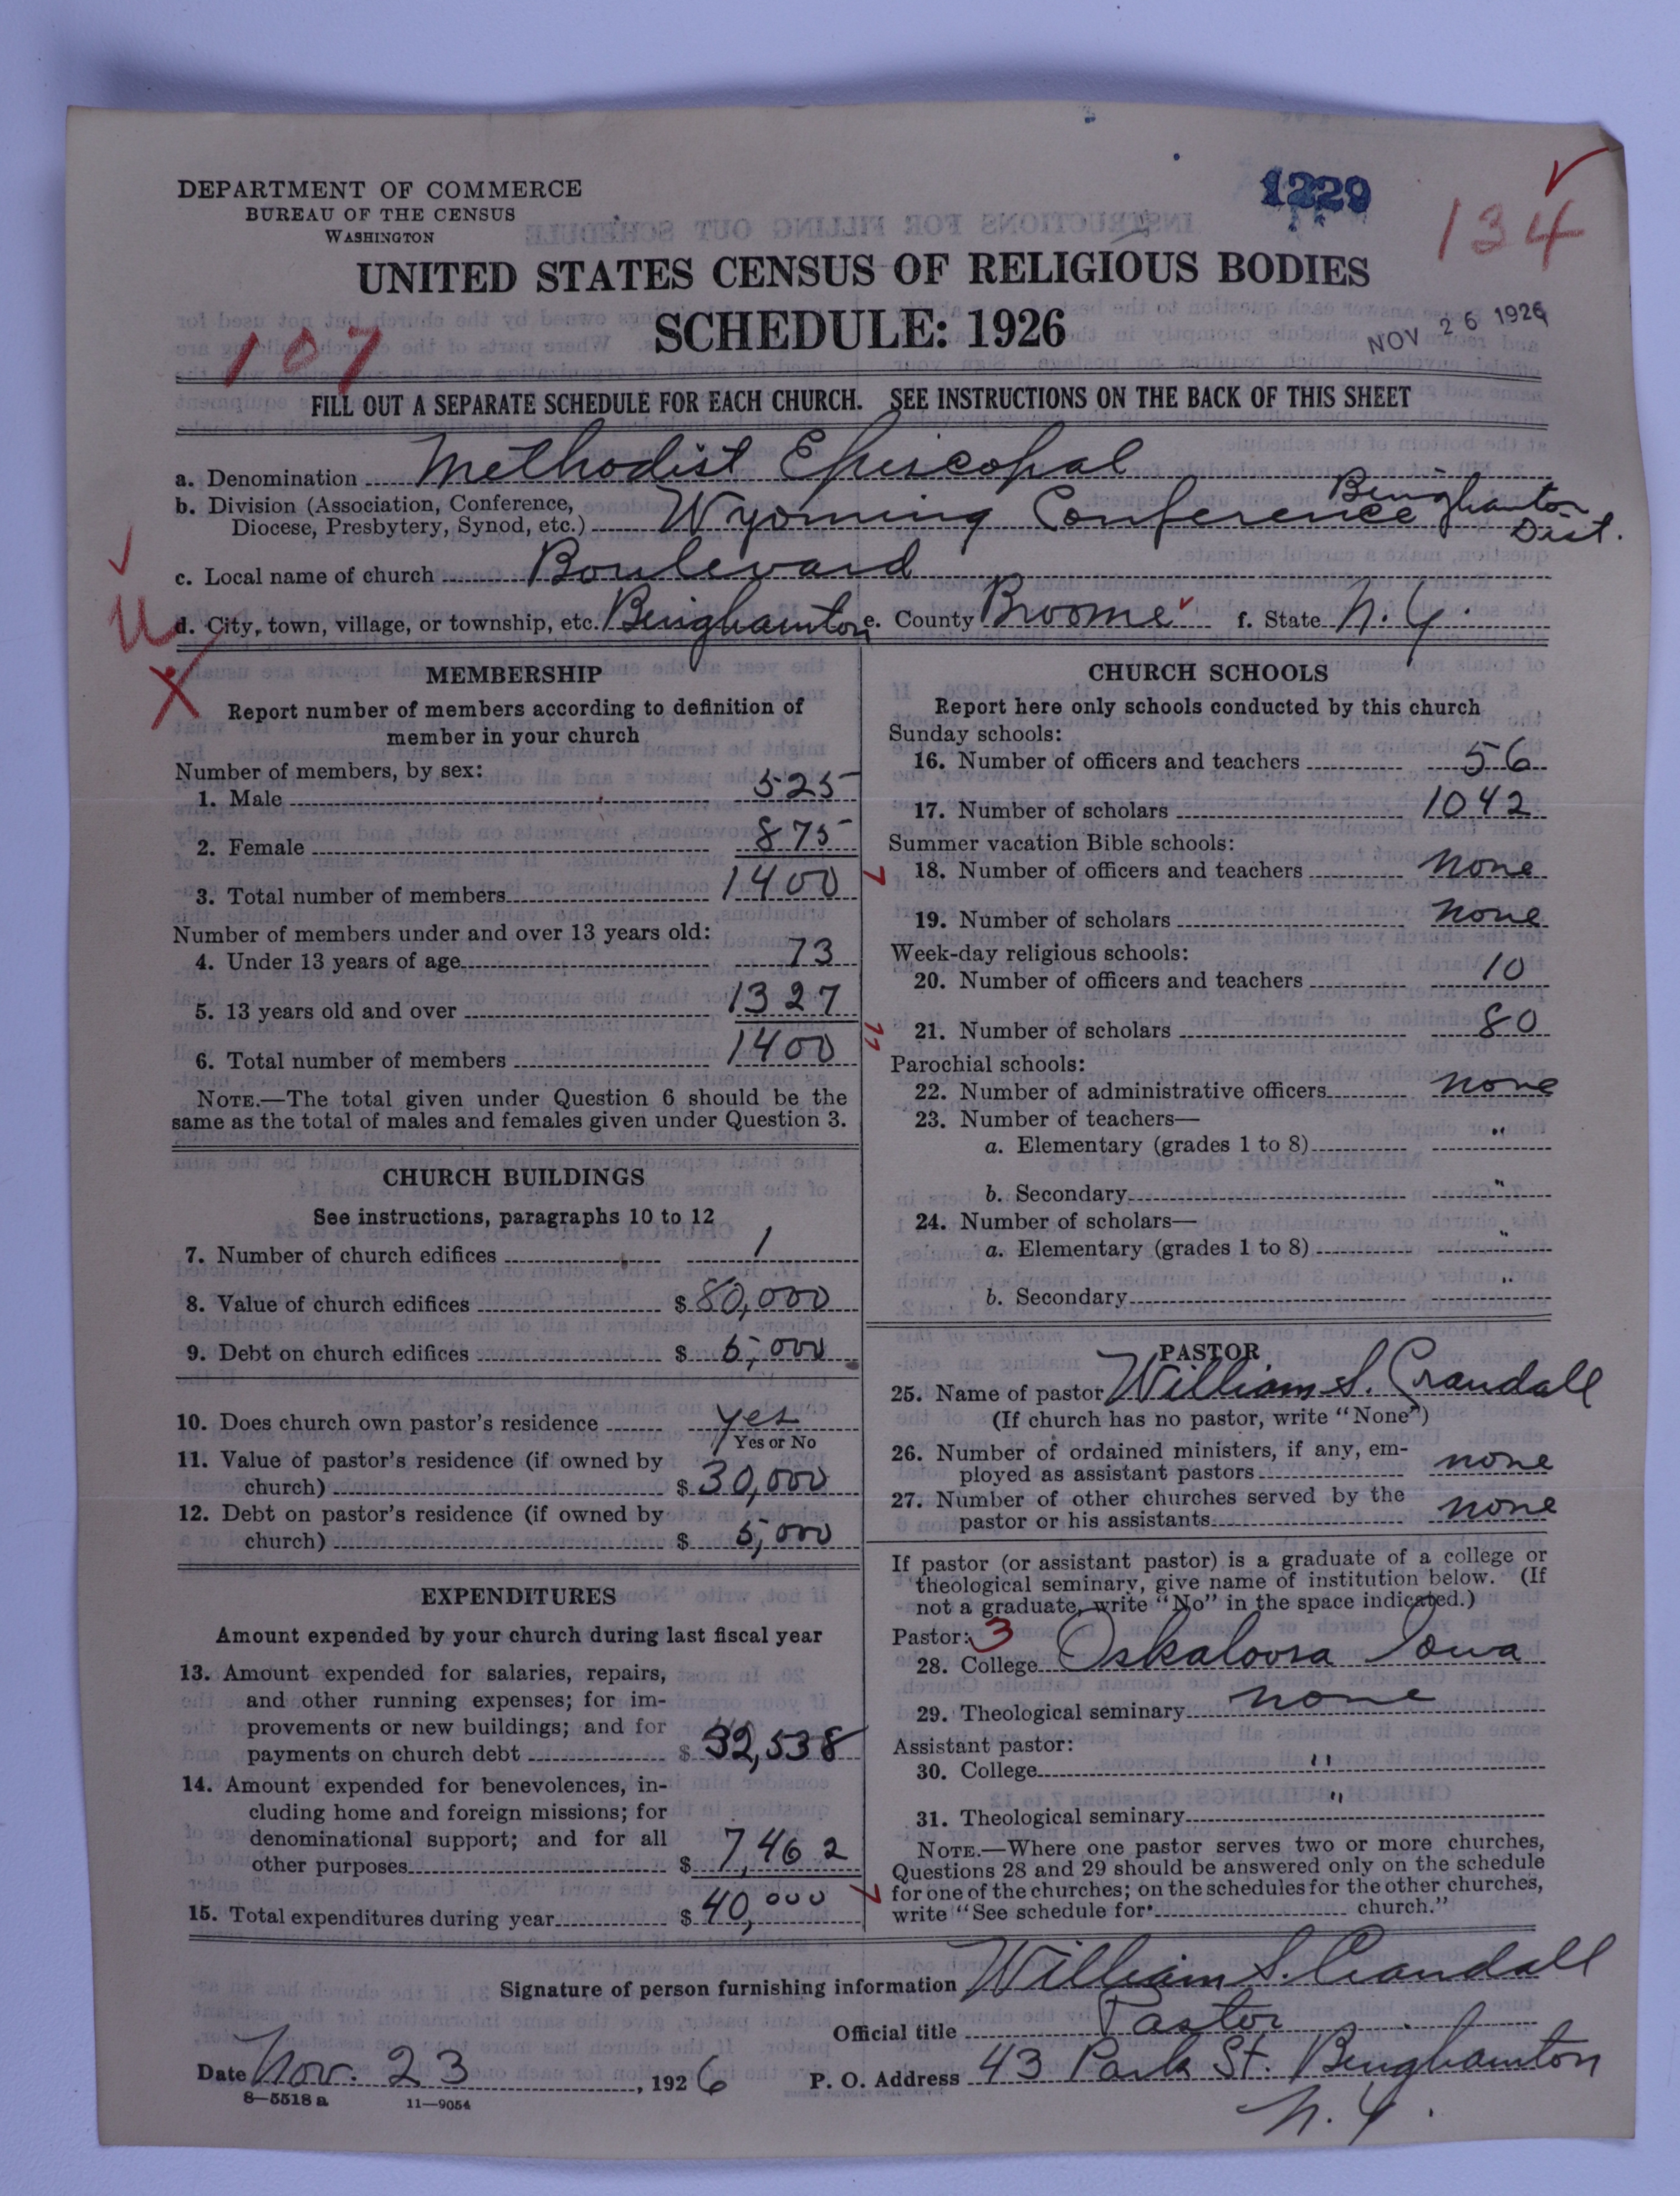 DEPARTMENT OF COMMERCE
BUREAU OF THE CENSUS
WASHINGTON
1229
134
UNITED STATES CENSUS OF RELIGIOUS BODIES
SCHEDULE: 1926
NOV 26 1926
107
FILL OUT A SEPARATE SCHEDULE FOR EACH CHURCH. SEE INSTRUCTIONS ON THE BACK OF THIS SHEET
a. Denomination Methodist Episcopal
b. Division (Association, Conference, Diocese, Presbytery, Synod, etc.) Wyoming Conference Binghamton Dist.
c. Local name of church Boulevard
d. City, town, village, or township, etc. Binghamton e. County Broome f. State N.Y.
MEMBERSHIP
Report number of members according to definition of
member in your church
Number of members, by sex:
1. Male 525
2. Female 875
3. Total number of members 1400
Number of members under and over 13 years old:
4. Under 13 years of age 73
5. 13 years old and over 1327
6. Total number of members 1400
NOTE.—The total given under Question 6 should be the
same as the total of males and females given under Question 3.
CHURCH BUILDINGS
See instructions, paragraphs 10 to 12
7. Number of church edifices 1
8. Value of church edifices $ 80,000
9. Debt on church edifices $ 5,000
10. Does church own pastor's residence yes
Yes or No
11. Value of pastor's residence (if owned by
church) $ 30,000
12. Debt on pastor's residence (if owned by
church) $ 5,000
EXPENDITURES
Amount expended by your church during last fiscal year
13. Amount expended for salaries, repairs,
and other running expenses; for im-
provements or new buildings; and for
payments on church debt $ 32,538
14. Amount expended for benevolences, in-
cluding home and foreign missions; for
denominational support; and for all
other purposes $ 7,462
15. Total expenditures during year $ 40,000
CHURCH SCHOOLS
Report here only schools conducted by this church
Sunday schools:
16. Number of officers and teachers 56
17. Number of scholars 1042
Summer vacation Bible schools:
18. Number of officers and teachers none
19. Number of scholars none
Week-day religious schools:
20. Number of officers and teachers 10
21. Number of scholars 80
Parochial schools:
22. Number of administrative officers none
23. Number of teachers—
a. Elementary (grades 1 to 8) "
b. Secondary "
24. Number of scholars—
a. Elementary (grades 1 to 8) "
b. Secondary "
PASTOR
25. Name of pastor William S. Crandall
(If church has no pastor, write "None")
26. Number of ordained ministers, if any, em-
ployed as assistant pastors none
27. Number of other churches served by the
pastor or his assistants none
If pastor (or assistant pastor) is a graduate of a college or
theological seminary, give name of institution below. (If
not a graduate, write "No" in the space indicated.)
Pastor: 3
28. College Oskaloosa Iowa
29. Theological seminary none
Assistant pastor:
30. College "
31. Theological seminary "
NOTE.—Where one pastor serves two or more churches,
Questions 28 and 29 should be answered only on the schedule
for one of the churches; on the schedules for the other churches,
write "See schedule for church."
Signature of person furnishing information William S. Crandall
Official title Pastor
Date Nov. 23, 1926 P. O. Address 43 Park St. Binghamton
N.Y.
8—5518 a 11—9054